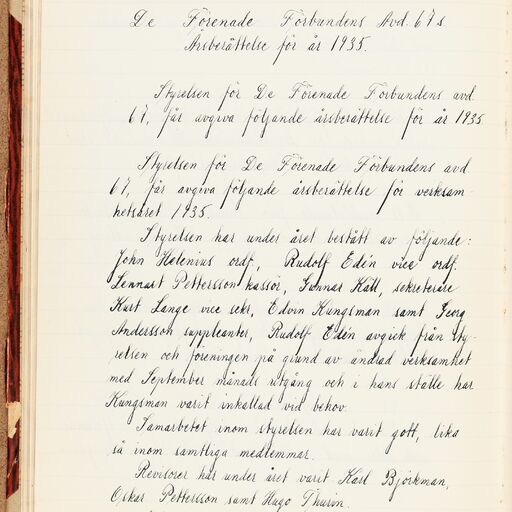 De Förenade Förbundens Avd. 67s
Årsberättelse för år 1935.
Styrelsen för De Förenade Förbundens avd.
67, får avgiva följande årsberättelse för år 1935
Styrelsen för De Förenade Förbundens avd
67, får avgiva följande årsberättelse för verksam-
hetsåret 1935.
Styrelsen har under året bestått av följande:
John Helenius ordf, Rudolf Edén vice ordf.
Lennart Pettersson kassör, Gunnar Käll, sekreterare
Kurt Lange vice sekr, Edvin Kungsman samt Georg
Andersson suppleanter, Rudolf Edén avgick från sty-
relsen och föreningen på grund av ändrad verksamhet
med September månads utgång och i hans ställe har
Kungsman varit inkallad vid behov.
Samarbetet inom styrelsen har varit gott, lika
så inom samtliga medlemmar.
Revisorer har under året varit Karl Björkman,
Oskar Pettersson samt Hugo Thurin.